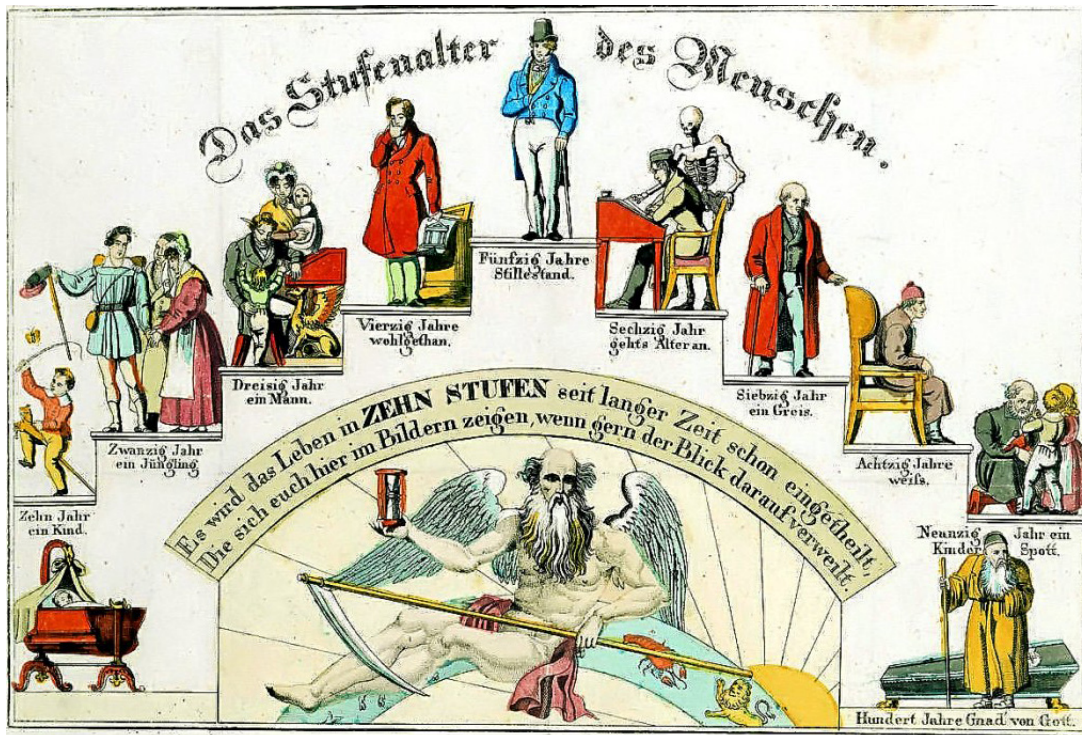 Das Stufenalter des Menschen.
Zehn Jahr
ein Kind.
Zwanzig Jahr
ein Jüngling.
Dreisig Jahr
ein Mann.
Vierzig Jahre
wohlgethan.
Fünfzig Jahre
Stillestand.
Sechzig Jahr
gehts Älter an.
Siebzig Jahr
ein Greis.
Achtzig Jahre
weiſs.
Neunzig Jahr ein
Kinder Spott.
Hundert Jahre Gnad' von Gott.
Es wird das Leben in ZEHN STUFEN seit langer Zeit schon eingetheilt,
Die sich euch hier im Bildern zeigen, wenn gern der Blick darauf verweilt.